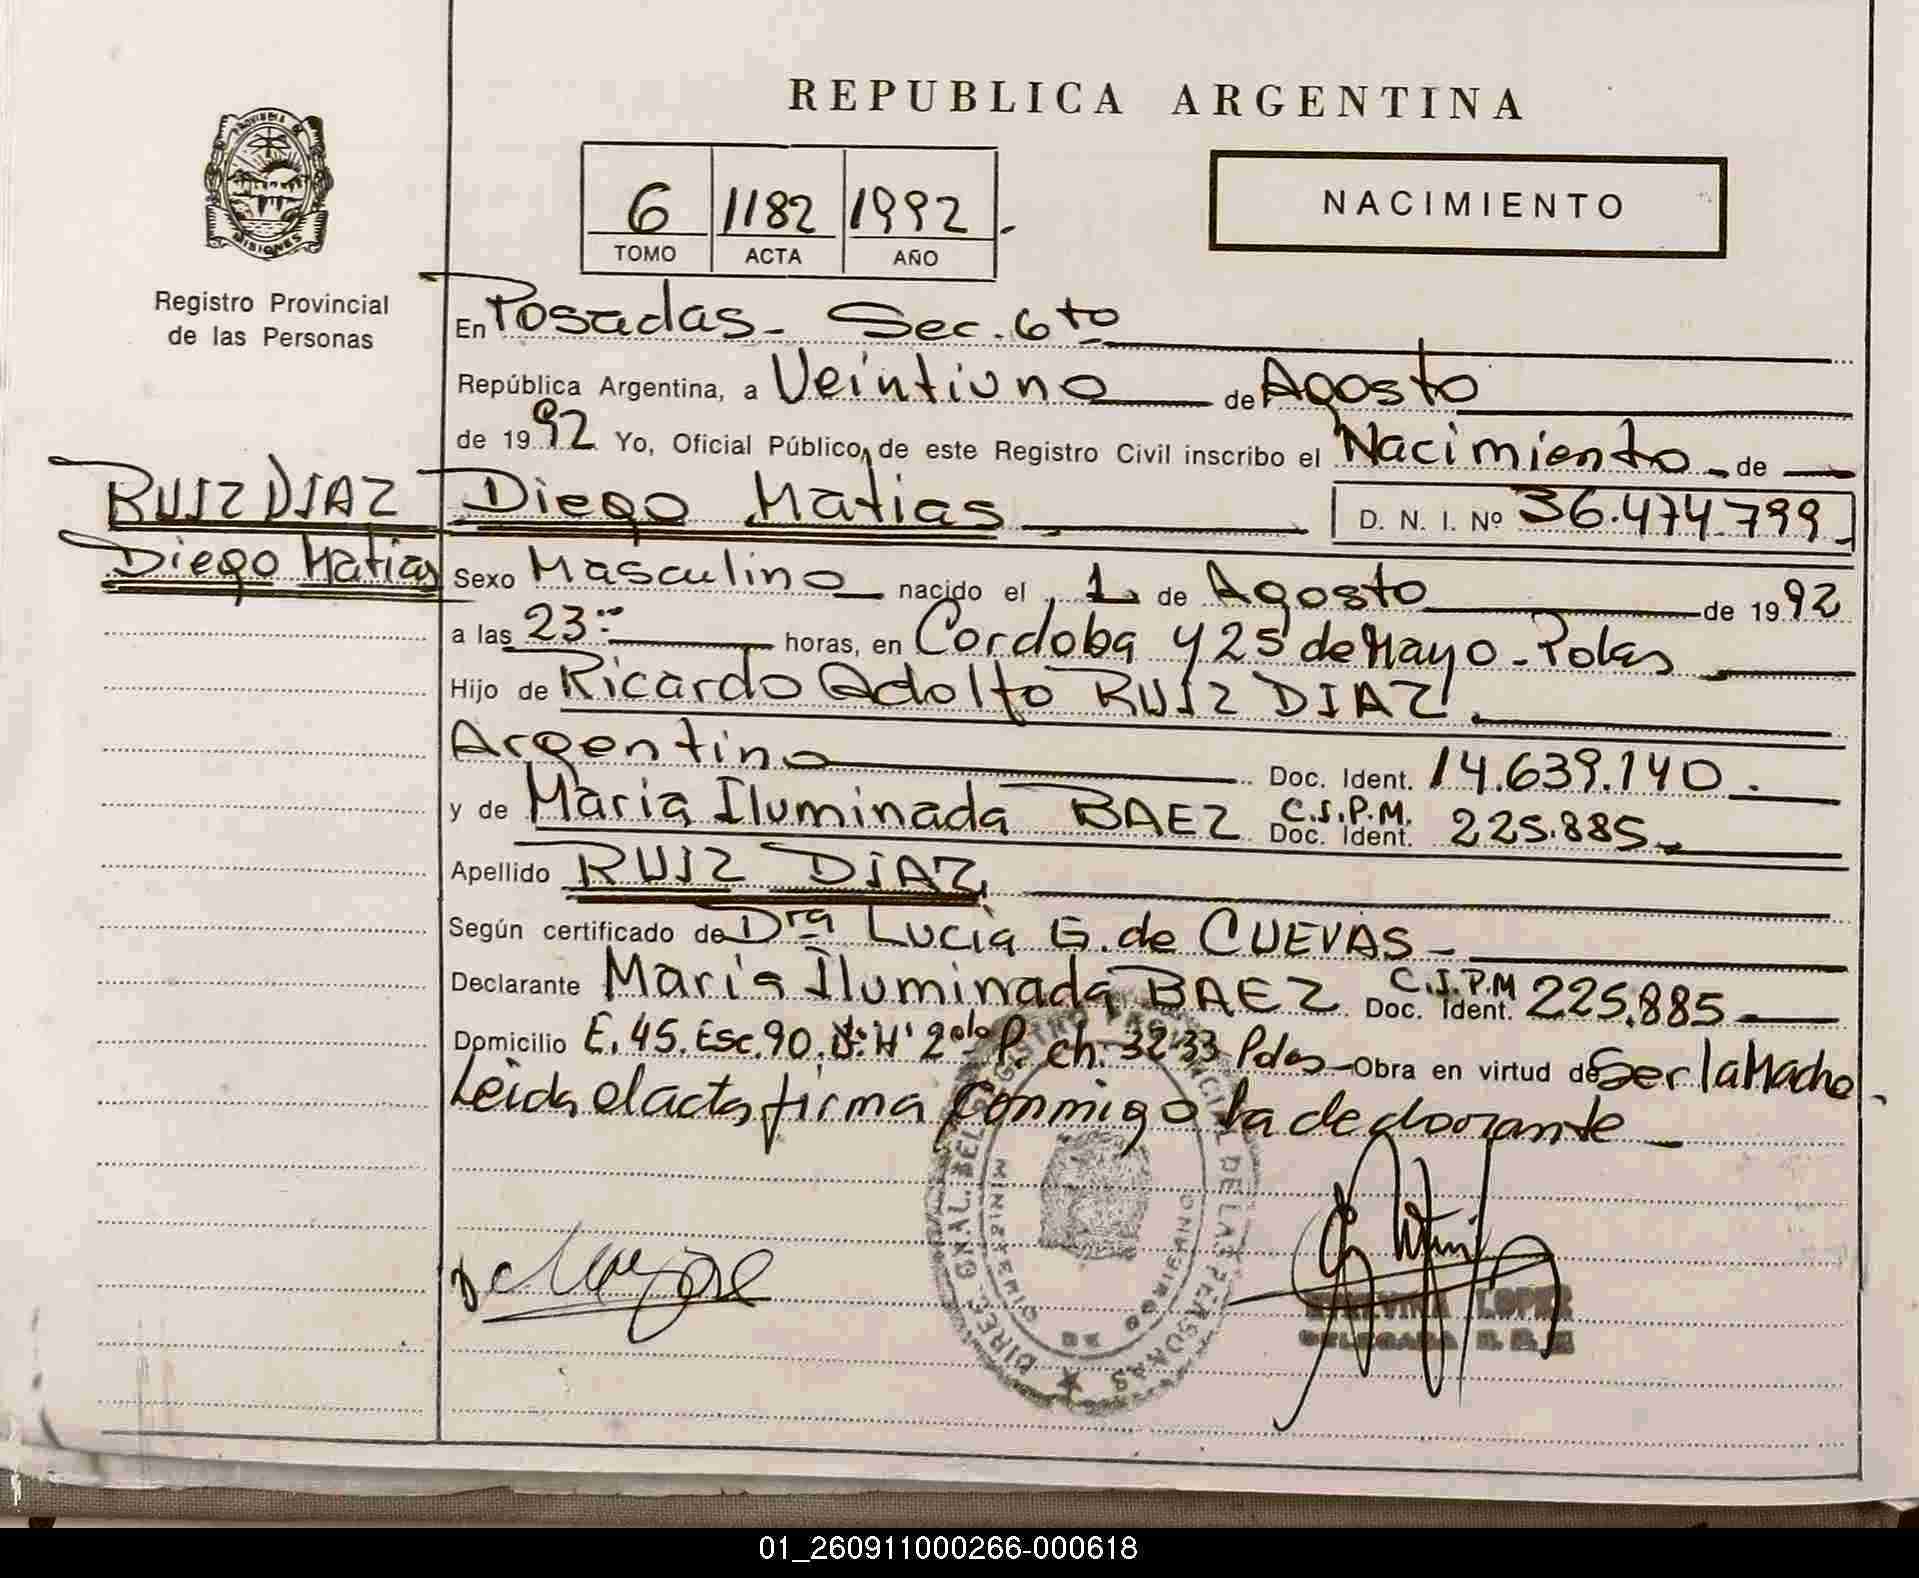 REPUBLICA ARGENTINA
PROVINCIA DE MISIONES
Registro Provincial
de las Personas
6 1182 1992
TOMO ACTA AÑO
NACIMIENTO
En Posadas - Sec. 6to
República Argentina, a Veintiuno de Agosto
de 1992 Yo, Oficial Público, de este Registro Civil inscribo el Nacimiento - de
RUIZ DIAZ
Diego Matias
Diego Matias D. N. I. Nº 36.474.799
Sexo Masculino nacido el 1 de Agosto de 1992
a las 23 horas, en Cordoba y 25 de Mayo - Pdas
Hijo de Ricardo Adolfo RUIZ DIAZ
Argentino Doc. Ident. 14.639.140.
y de Maria Iluminada BAEZ C.I.P.M. Doc. Ident. 225.885
Apellido RUIZ DIAZ
Según certificado de Dra Lucia G. de CUEVAS -
Declarante Maria Iluminada BAEZ C.I.P.M Doc. Ident. 225.885
Domicilio E. 45. Esc. 90. 2do P. ch. 32-33 Pdas - Obra en virtud de Ser la Madre.
Leida el acta firma Conmigo la declarante
DIREC. GRAL. DEL REGISTRO PROVINCIAL DE LAS PERSONAS
MINISTERIO DE GOBIERNO
LOPEZ
DELEGADA
01_260911000266-000618